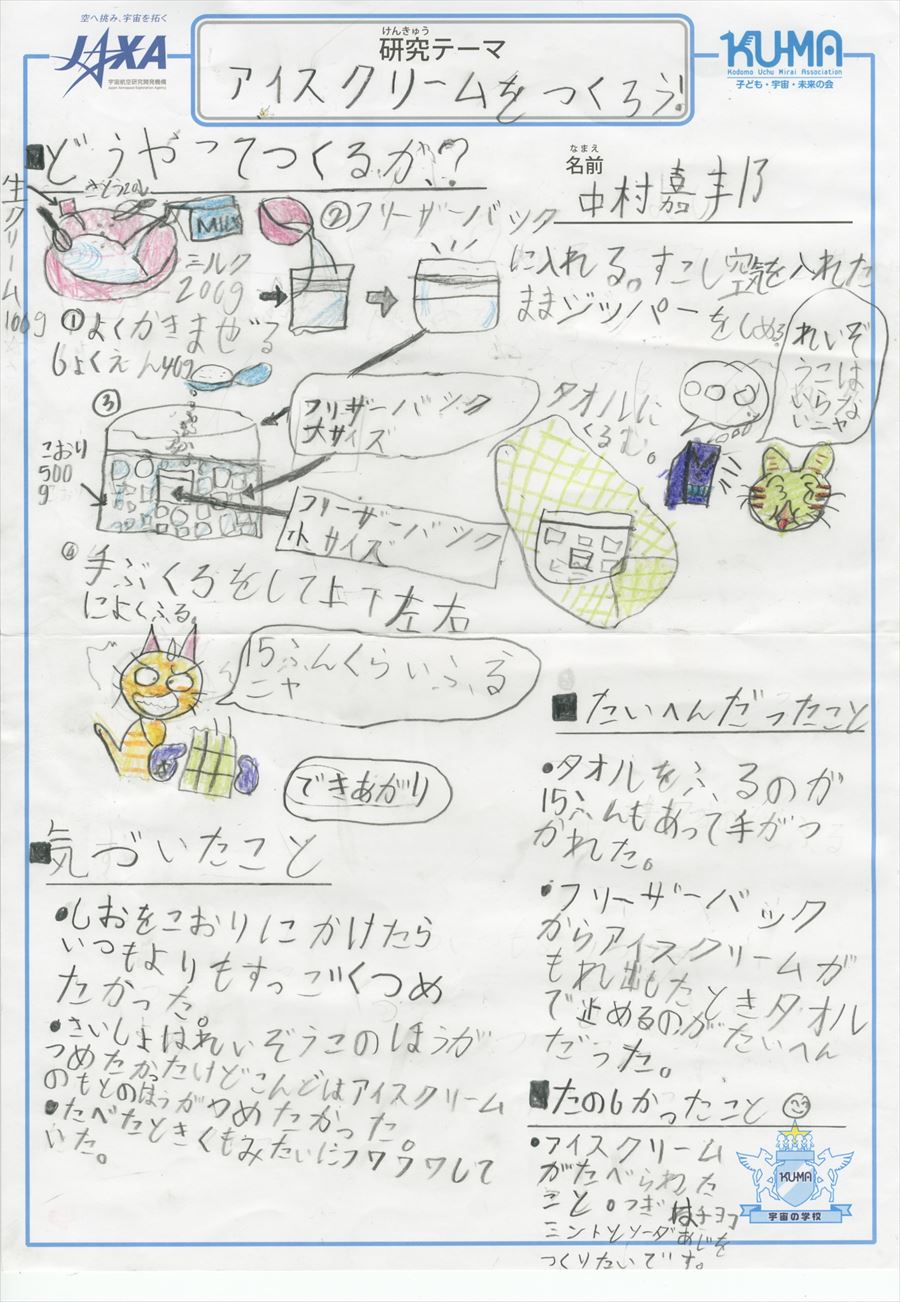 空へ挑み、宇宙を拓く
JAXA
宇宙航空研究開発機構
Japan Aerospace Exploration Agency
けんきゅう
研究テーマ
アイスクリームをつくろう!
KU-MA
Kodomo Uchu Mirai Association
子ども・宇宙・未来の会
■どうやってつくるか?
なまえ
名前
中村嘉
生クリーム
100g
さとう20g
MILK
ミルク
200g
①よくかきまぜる
②フリーザーバック
に入れる。すこし空気を入れた
ままジッパーをしめる。
しょくえん40g
③
こおり
500
g
フリーザーバック
大サイズ
フリーザーバック
小サイズ
タオルに
くるむ。
れいぞ
うこは
いらな
いニャ
④
手ぶくろをして上下左右
によくふる。
15ふんくらいふる
ニャ
できあがり
■気づいたこと
•しおをこおりにかけたら
いつもよりもすっごくつめ
たかった。
•さいしょはれいぞうこのほうが
つめたかったけどこんどはアイスクリーム
のもとのほうがつめたかった。
•たべたときくもみたいにフワフワして
いた。
■たいへんだったこと
•タオルをふるのが
15ふんもあって手がつ
かれた。
•フリーザーバック
からアイスクリームが
もれ出もたときタオル
で止めるのがたいへん
だった。
■たのしかったこと
•アイスクリーム
がたべられた
こと。つぎはチョコ
ミントとソーダあじを
つくりたいです。
KU-MA
宇宙の学校